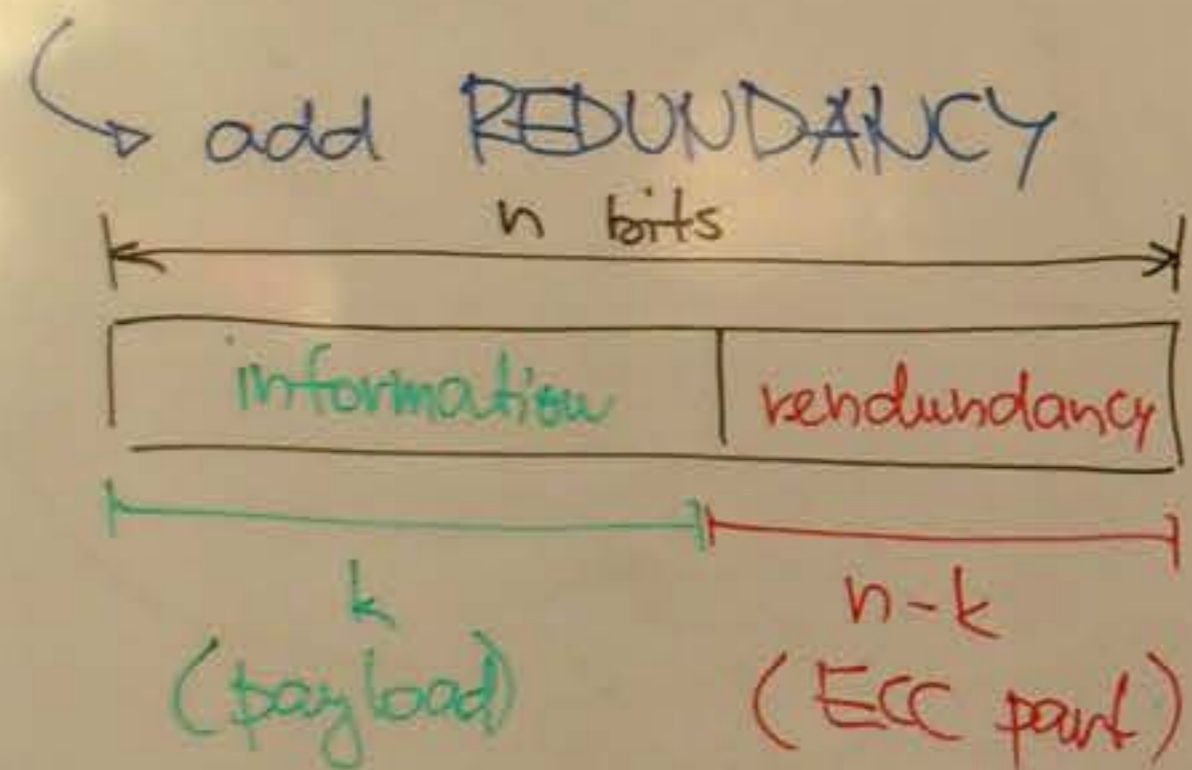 add REDUNDANCY
n bits
information rendundancy
k n-k
(payload) (ECC part)